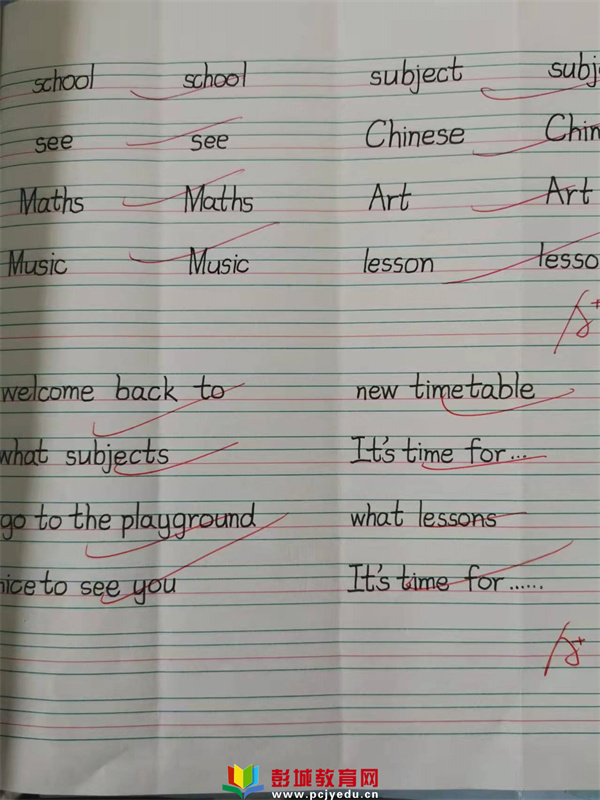 school school subject subj
see see Chinese Chin
Maths Maths Art Art
Music Music lesson lesso
A+
welcome back to new timetable
what subjects It's time for...
go to the playground what lessons
nice to see you It's time for......
A+
彭城教育网
www.pcjyedu.cn